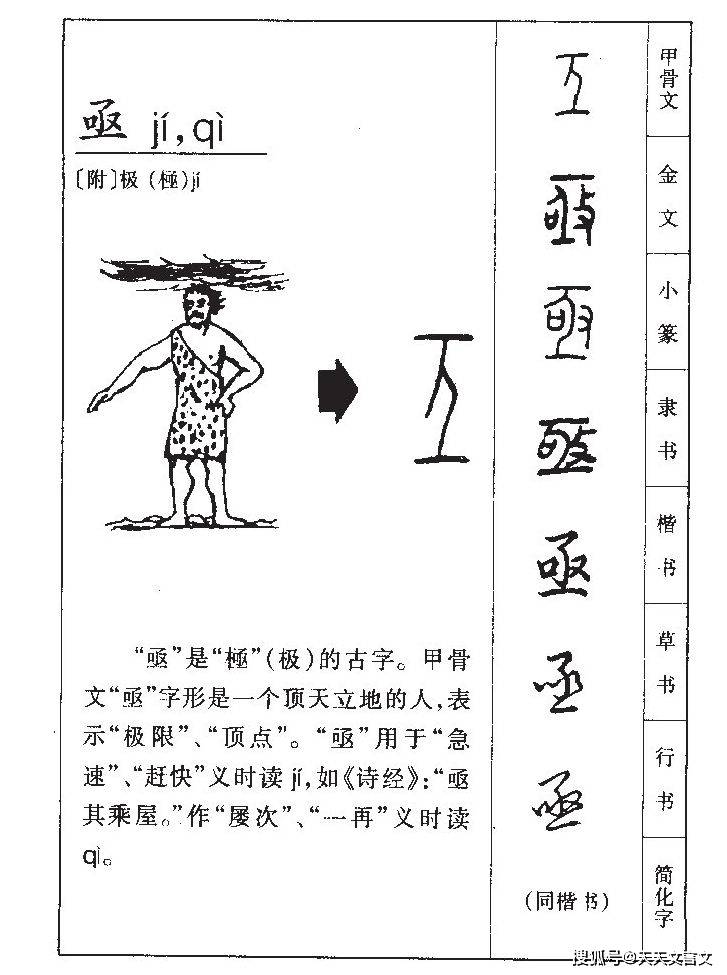 亟 jí,qì
〔附〕极(極)jí
“亟”是“極”(极)的古字。甲骨
文“亟”字形是一个顶天立地的人,表
示“极限”、“顶点”。“亟”用于“急
速”、“赶快”义时读 jí,如《诗经》:“亟
其乘屋。”作“屡次”、“一再”义时读
qì。
甲骨文
金文
小篆
隶书
楷书
亟
草书
亟
行书
亟
简化字
(同楷书)
搜狐号@天天文言文